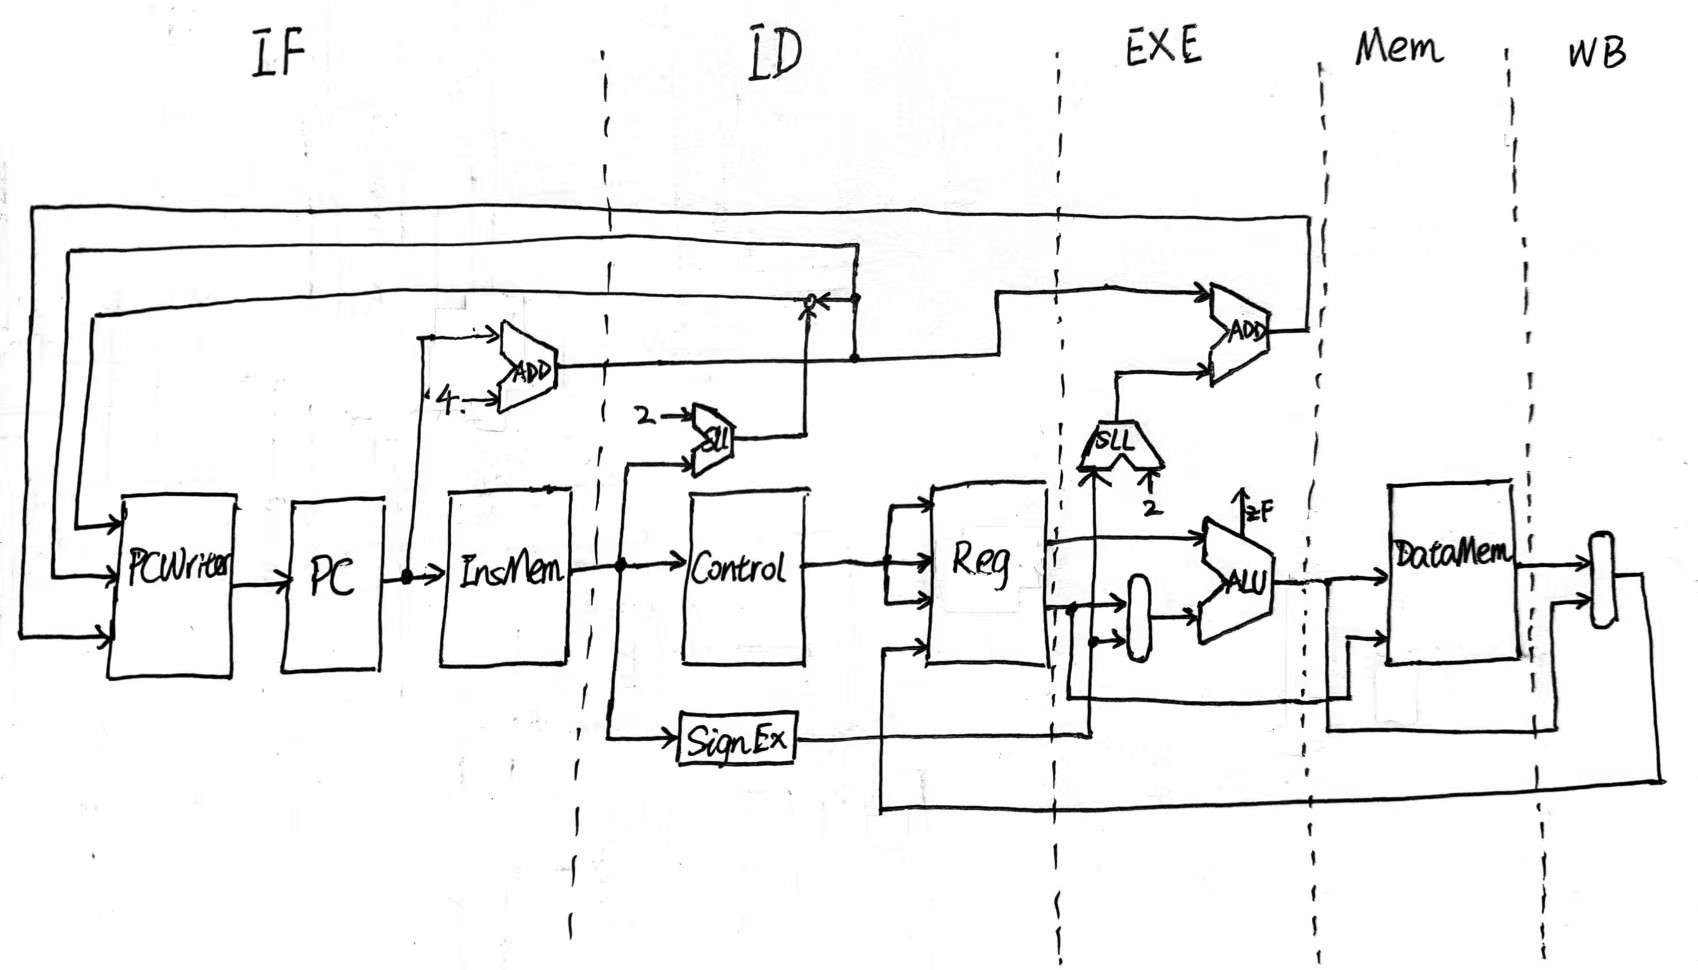 IF ID EXE Mem WB
ADD
4.
ADD
2
SLL
SLL
2
ZF
PCWriter
PC
InsMem
Control
Reg
ALU
DataMem
SignEx